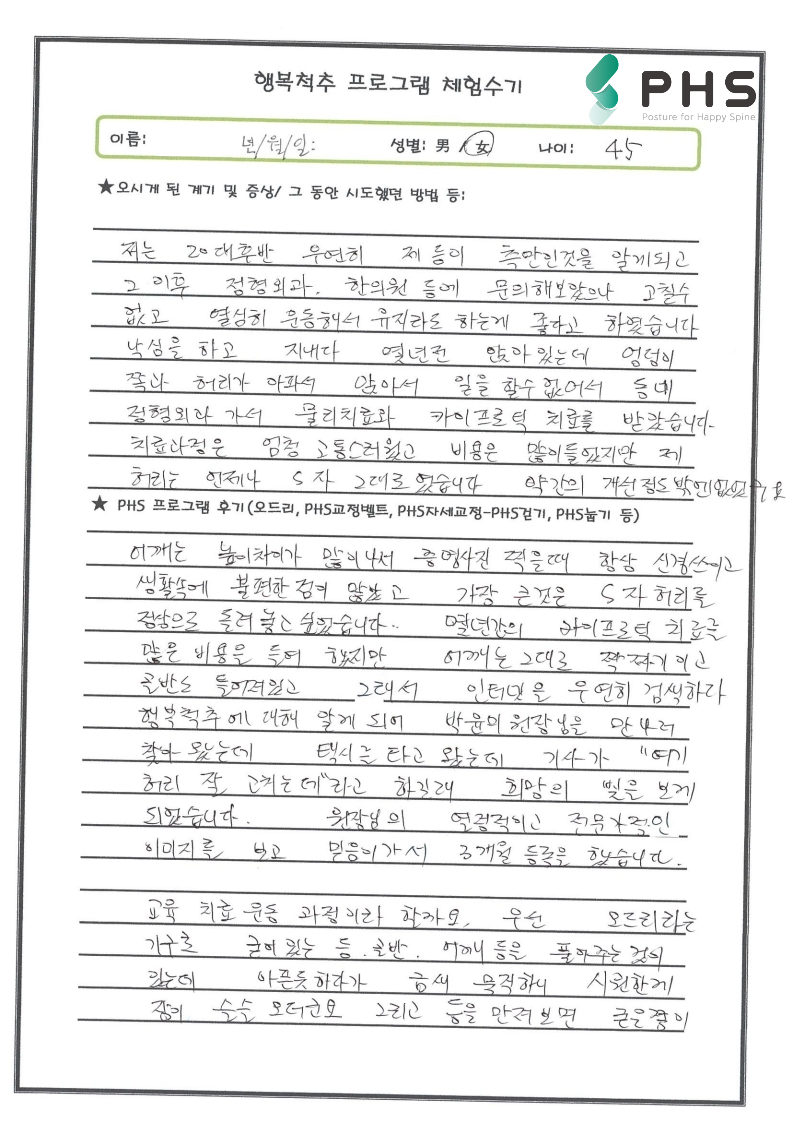 행복척추 프로그램 체험수기
PHS
Posture for Happy Spine
이름: 년/월/일: 성별: 男 / 女 나이: 45
★오시게 된 계기 및 증상/ 그 동안 시도했던 방법 등:
저는 20대후반 우연히 제 등이 측만인것을 알게되고
그 이후 정형외과, 한의원 등에 문의해보았으나 고칠수
없고 열심히 운동해서 유지라도 하는게 좋다고 하였습니다
낙심을 하고 지내다 몇년전 앉아 있는데 엉덩이
쪽과 허리가 아파서 앉아서 일을 할수 없어서 동네
정형외과 가서 물리치료와 카이프로틱 치료를 받았습니다.
치료과정은 엄청 고통스러웠고 비용은 많이들었지만 제
허리는 언제나 S자 그대로 였습니다 약간의 개선정도밖엔
★ PHS 프로그램 후기(오드리, PHS교정벨트, PHS자세교정-PHS걷기, PHS눕기 등)
어깨는 높이차이가 많이나서 증명사진 찍을때 항상 신경쓰이고
생활속에 불편한 점이 많았고 가장 큰것은 S자 허리를
정상으로 돌려 놓고 싶었습니다.. 몇년간의 카이프로틱 치료를
많은 비용을 들여 했지만 어깨는 그대로 짝짝이이고
골반도 틀어져있고 그래서 인터넷을 우연히 검색하다
행복척추에 대해 알게 되어 박윤미 원장님을 만나러
찾아 왔는데 택시를 타고 왔는데 기사가 "여기
허리 잘 고치는데"라고 하길래 희망의 빛을 보게
되었습니다. 원장님의 열정적이고 전문가적인
이미지를 보고 믿음이가서 3개월 등록을 했습니다.
교육 치료 운동 과정이라 할까요, 우선 오드리라는
기구로 굳어 있는 등.골반. 어깨 등을 풀어주는 것이
있는데 아픈듯하다가 금새 묵직하니 시원한게
잠이 솔솔 오더군요 그리고 등을 만져보면